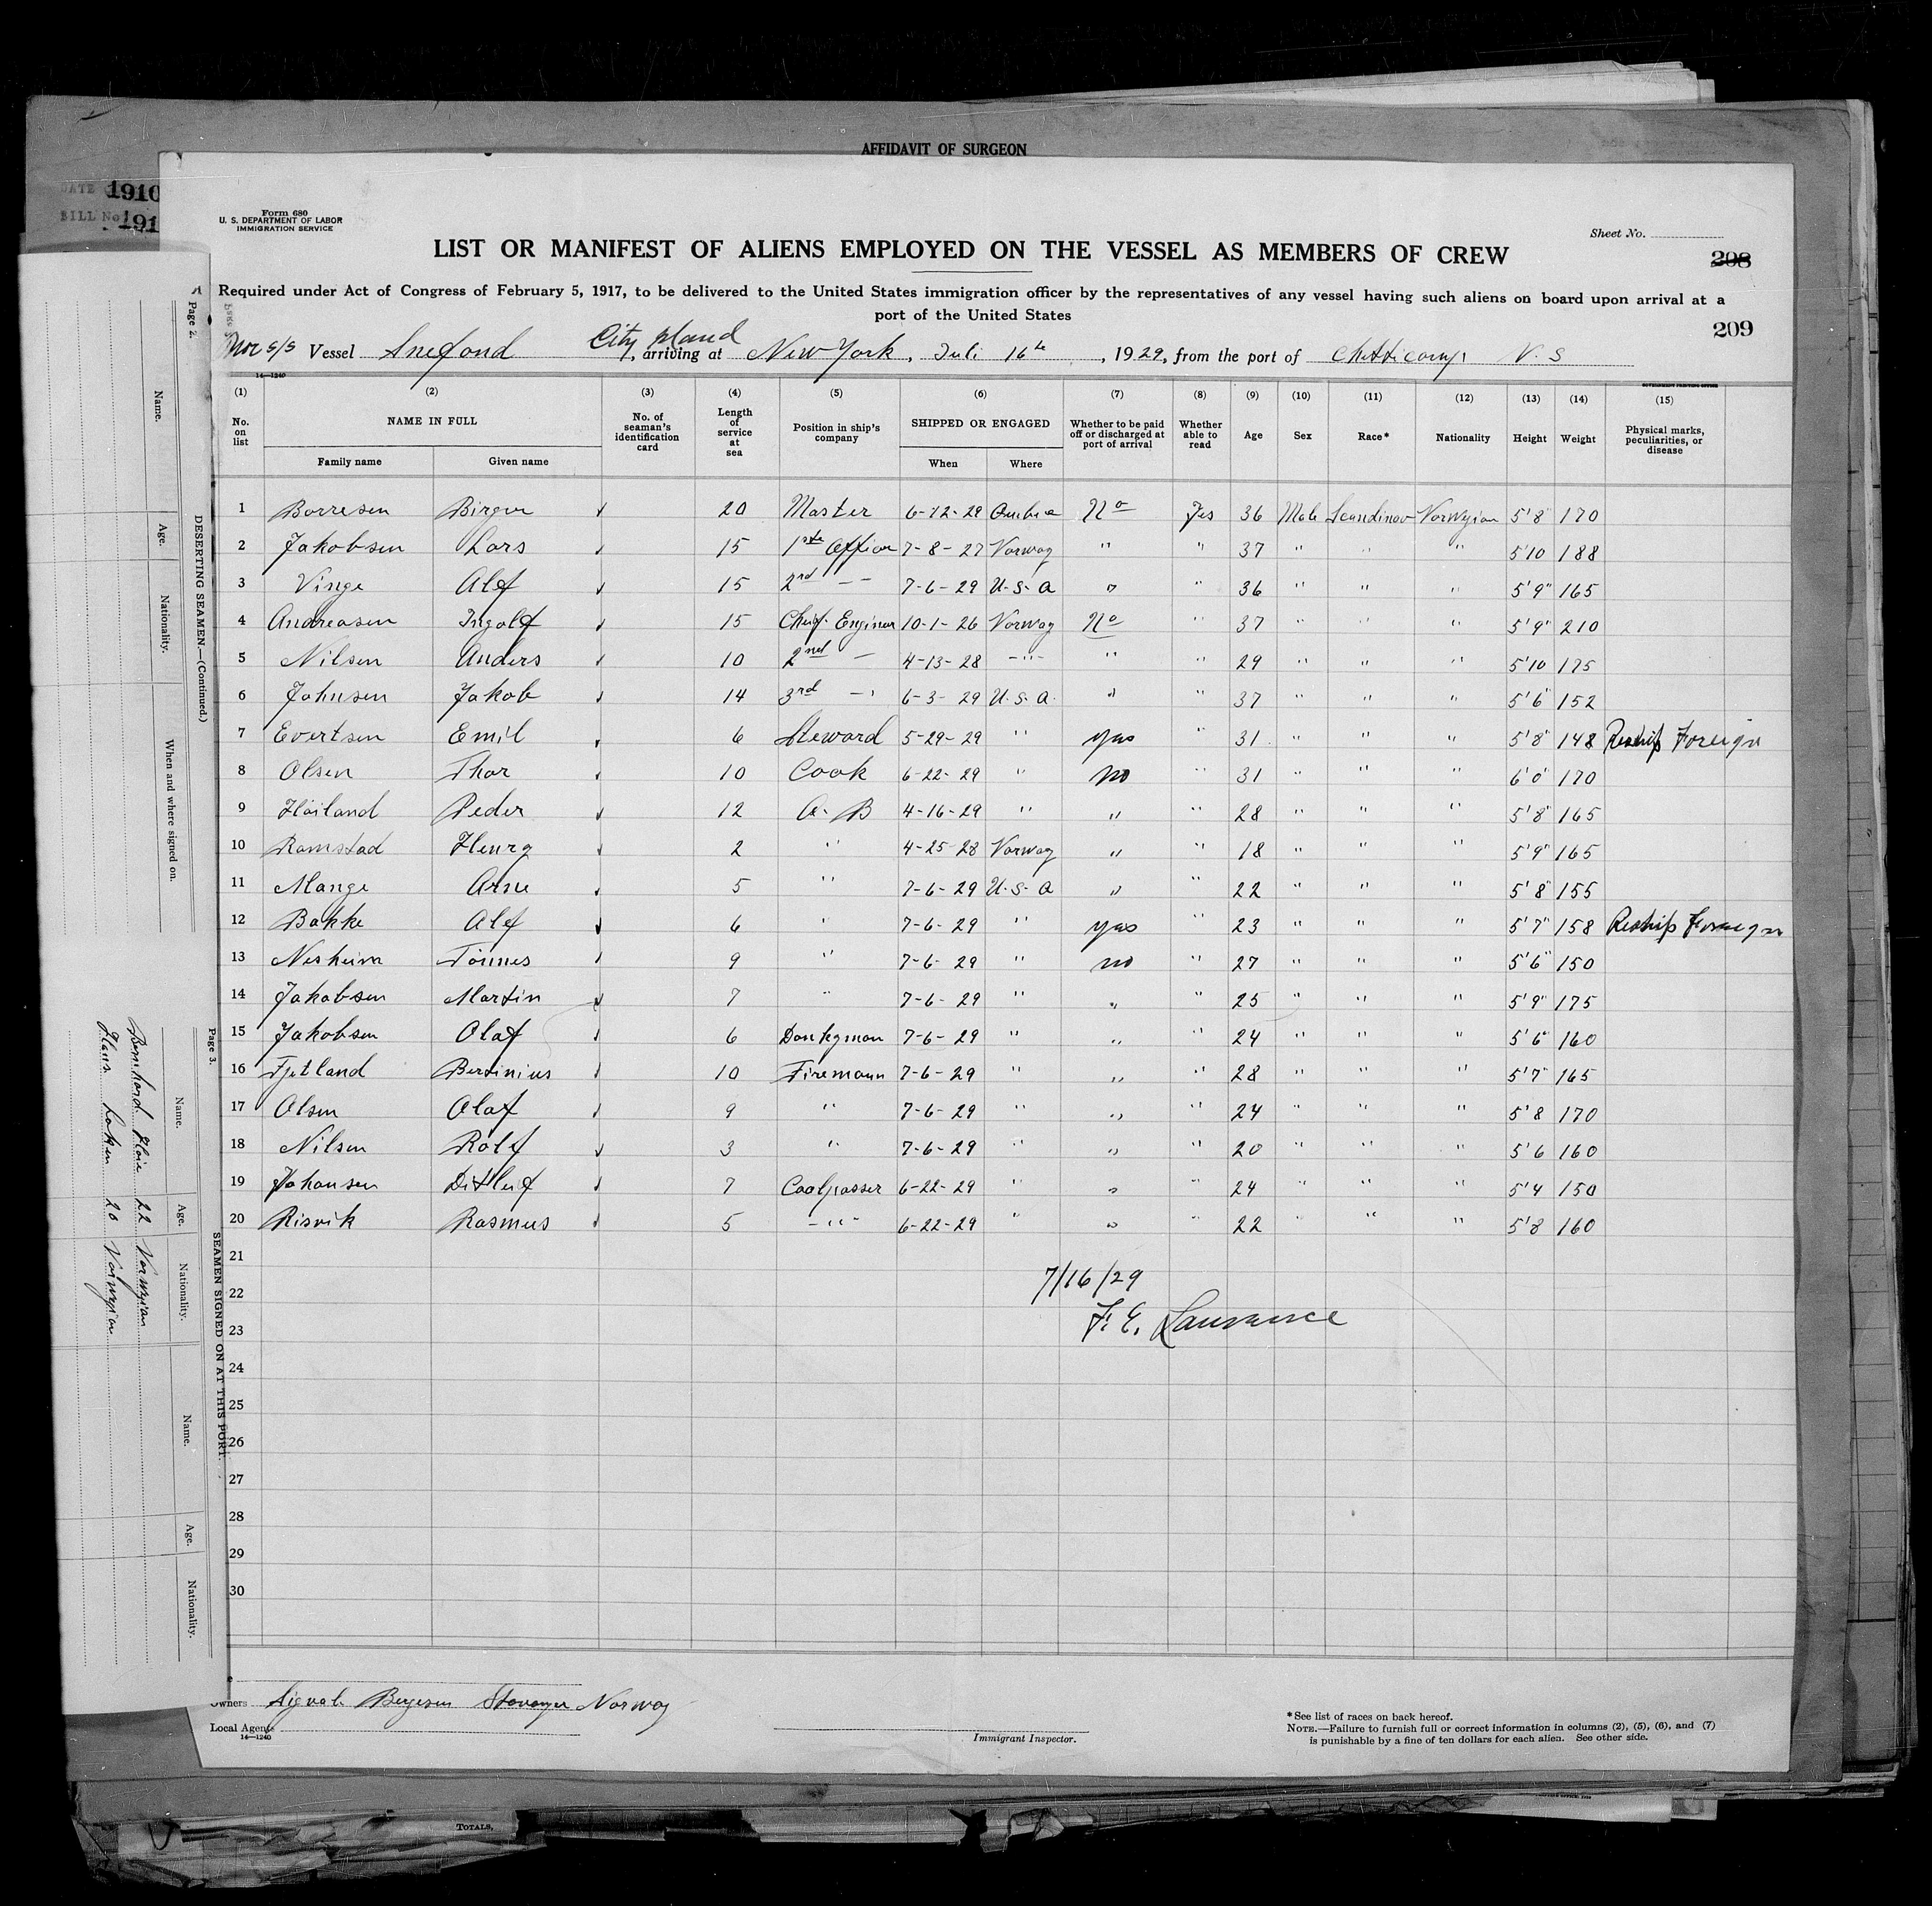 AFFIDAVIT OF SURGEON
DATE 1910
BILL No. 191
Form 680
U. S. DEPARTMENT OF LABOR
IMMIGRATION SERVICE
Sheet No.
LIST OR MANIFEST OF ALIENS EMPLOYED ON THE VESSEL AS MEMBERS OF CREW
208
Required under Act of Congress of February 5, 1917, to be delivered to the United States immigration officer by the representatives of any vessel having such aliens on board upon arrival at a
port of the United States
209
Nor s/s Vessel Snefond, arriving at City Island New York, Juli 16th, 1929, from the port of Chetticamp N. S
14—1240
(1) (2) (3) (4) (5) (6) (7) (8) (9) (10) (11) (12) (13) (14) (15)
No. on list NAME IN FULL Family name Given name No. of seaman's identification card Length of service at sea Position in ship's company SHIPPED OR ENGAGED When Where Whether to be paid off or discharged at port of arrival Whether able to read Age Sex Race* Nationality Height Weight Physical marks, peculiarities, or disease
1 Borresen Birger 20 Master 6-12-29 No Yes 36 Male Scandinav Norwgian 5'8" 170
2 Jakobsen Lars 15 1ste Officer 7-8-27 Norway " " 37 " " " 5'10 188
3 Vinge Alf 15 2nd – – 7-6-29 U.S.A " " 36 " " " 5'9" 165
4 Andreasen Ingolf 15 Chief. Enginer 10-1-26 Norway No " 37 " " " 5'9" 210
5 Nilsen Anders 10 2nd – 4-13-28 –"– " " 29 " " " 5'10 175
6 Johnsen Jakob 14 3rd – 6-3-29 U.S.A. " " 37 " " " 5'6" 152
7 Evertsen Emil 6 Steward 5-29-29 " yes " 31 " " " 5'8" 148 Reship Foreign
8 Olsen Thor 10 Cook 6-22-29 " no " 31 " " " 6'0" 170
9 Höiland Peder 12 A. B 4-16-29 " " " 28 " " " 5'8" 165
10 Ramstad Henry 2 " 4-25-28 Norway " " 18 " " " 5'9" 165
11 Mange Arne 5 " 7-6-29 U.S.A " " 22 " " " 5'8" 155
12 Bakke Alf 6 " 7-6-29 " yes " 23 " " " 5'7" 158 Reship Foreign
13 Neskeim Tönnes 9 " 7-6-29 " no " 27 " " " 5'6" 150
14 Jakobsen Martin 7 " 7-6-29 " " " 25 " " " 5'9" 175
15 Jakobsen Olaf 6 Donkyman 7-6-29 " " " 24 " " " 5'6" 160
16 Fjetland Bertinius 10 Firemann 7-6-29 " " " 28 " " " 5'7" 165
17 Olsen Olaf 9 " 7-6-29 " " " 24 " " " 5'8 170
18 Nilsen Rolf 3 " 7-6-29 " " " 20 " " " 5'6 160
19 Johansen Ditlef 7 Coalpasser 6-22-29 " " " 24 " " " 5'4 150
20 Risvik Rasmus 5 –"– 6-22-29 " " " 22 " " " 5'8 160
21
22 7/16/29
23 F. E. Laurence
24
25
26
27
28
29
30
Owners Sigval Bergesen Stavanger Norway
Local Agents
14—1240
Immigrant Inspector.
*See list of races on back hereof.
NOTE.—Failure to furnish full or correct information in columns (2), (5), (6), and (7)
is punishable by a fine of ten dollars for each alien. See other side.
Page 2.
DESERTING SEAMEN.—(Continued.)
Name. Age. Nationality. When and where signed on.
Page 3.
SEAMEN SIGNED ON AT THIS PORT.
Name. Age. Nationality. Name. Age. Nationality.
Bernhard 22 Norwgian
Hans Loken 20 Norwgian
TOTALS,